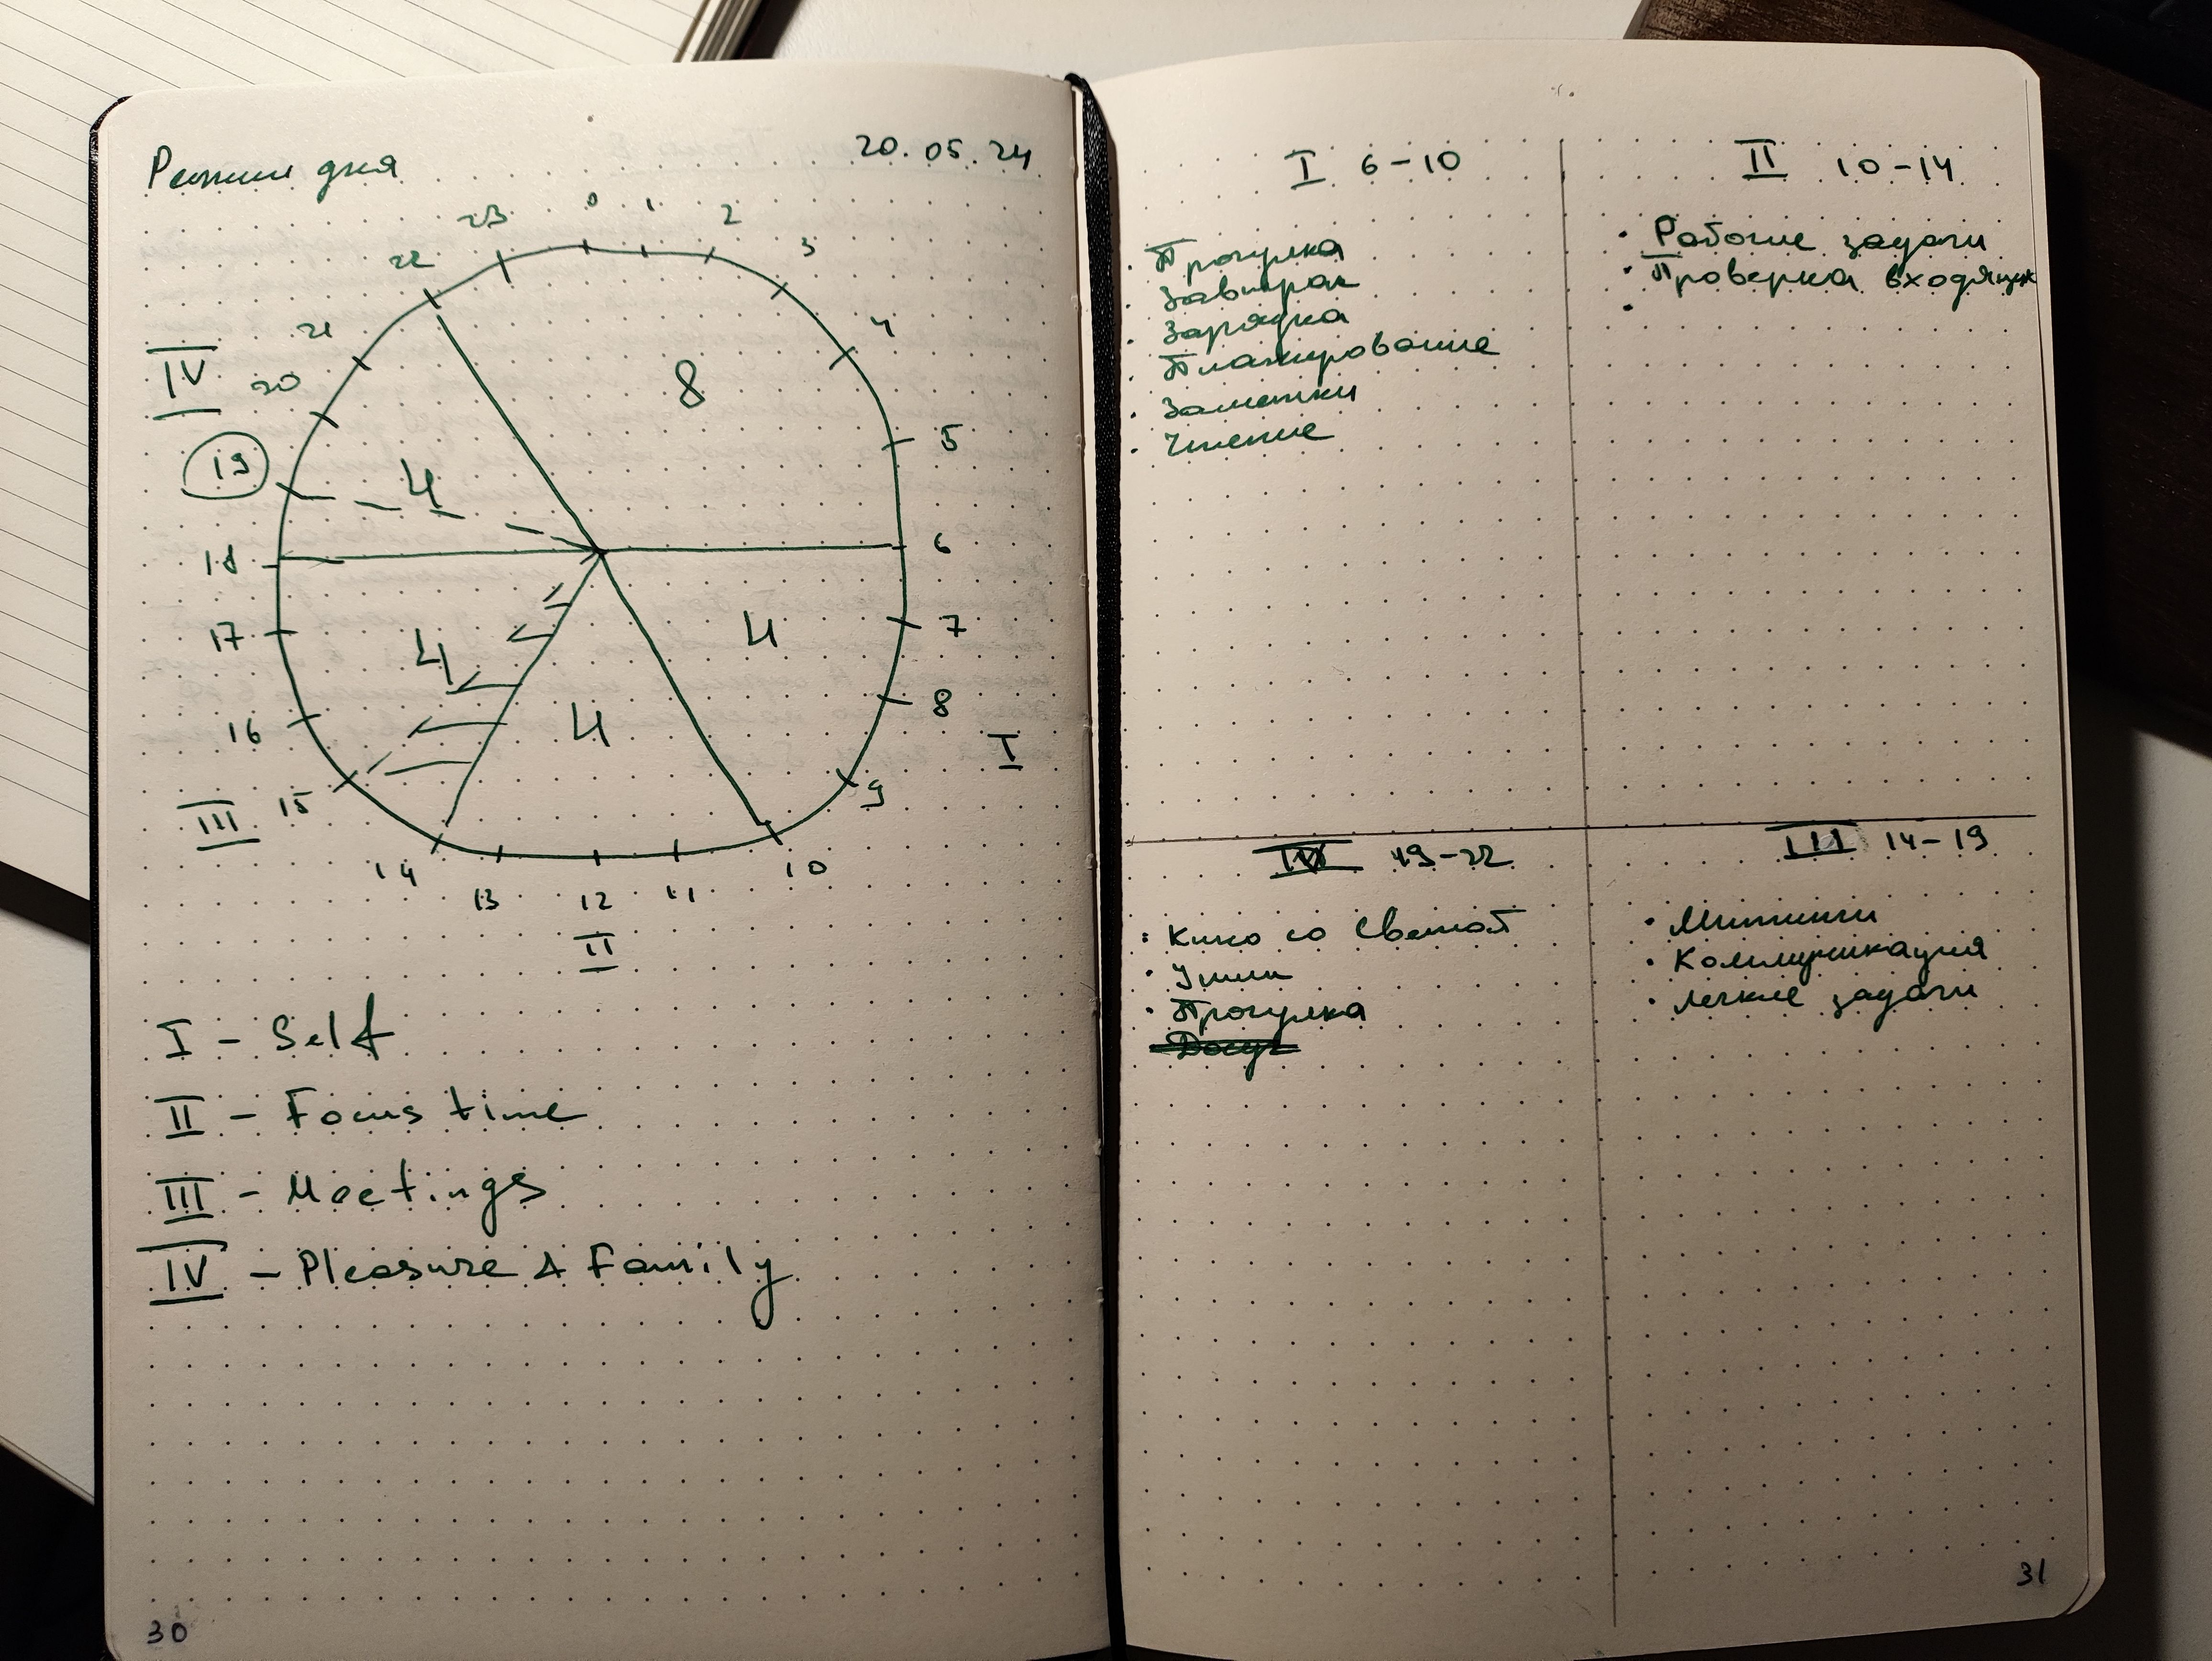 Режим дня
20.05.24
23 0 1 2
22 3
21 4
IV
20
8
19
4
5
18
6
17
4
4
7
16
4
8
I
III
15
9
14
13 12 11 10
II
I - Self
II - Focus time
III - Meetings
IV - Pleasure & Family
30
I 6-10
· Прогулка
· Завтрак
· Зарядка
· Планирование
· Заметки
· Чтение
II 10-14
· Рабочие задачи
· Проверка входящих
·
IV 19-22
· Кино со Светой
· Прогулка
Досуг
III 14-19
· Митинги
· Коммуникация
· Легкие задачи
31